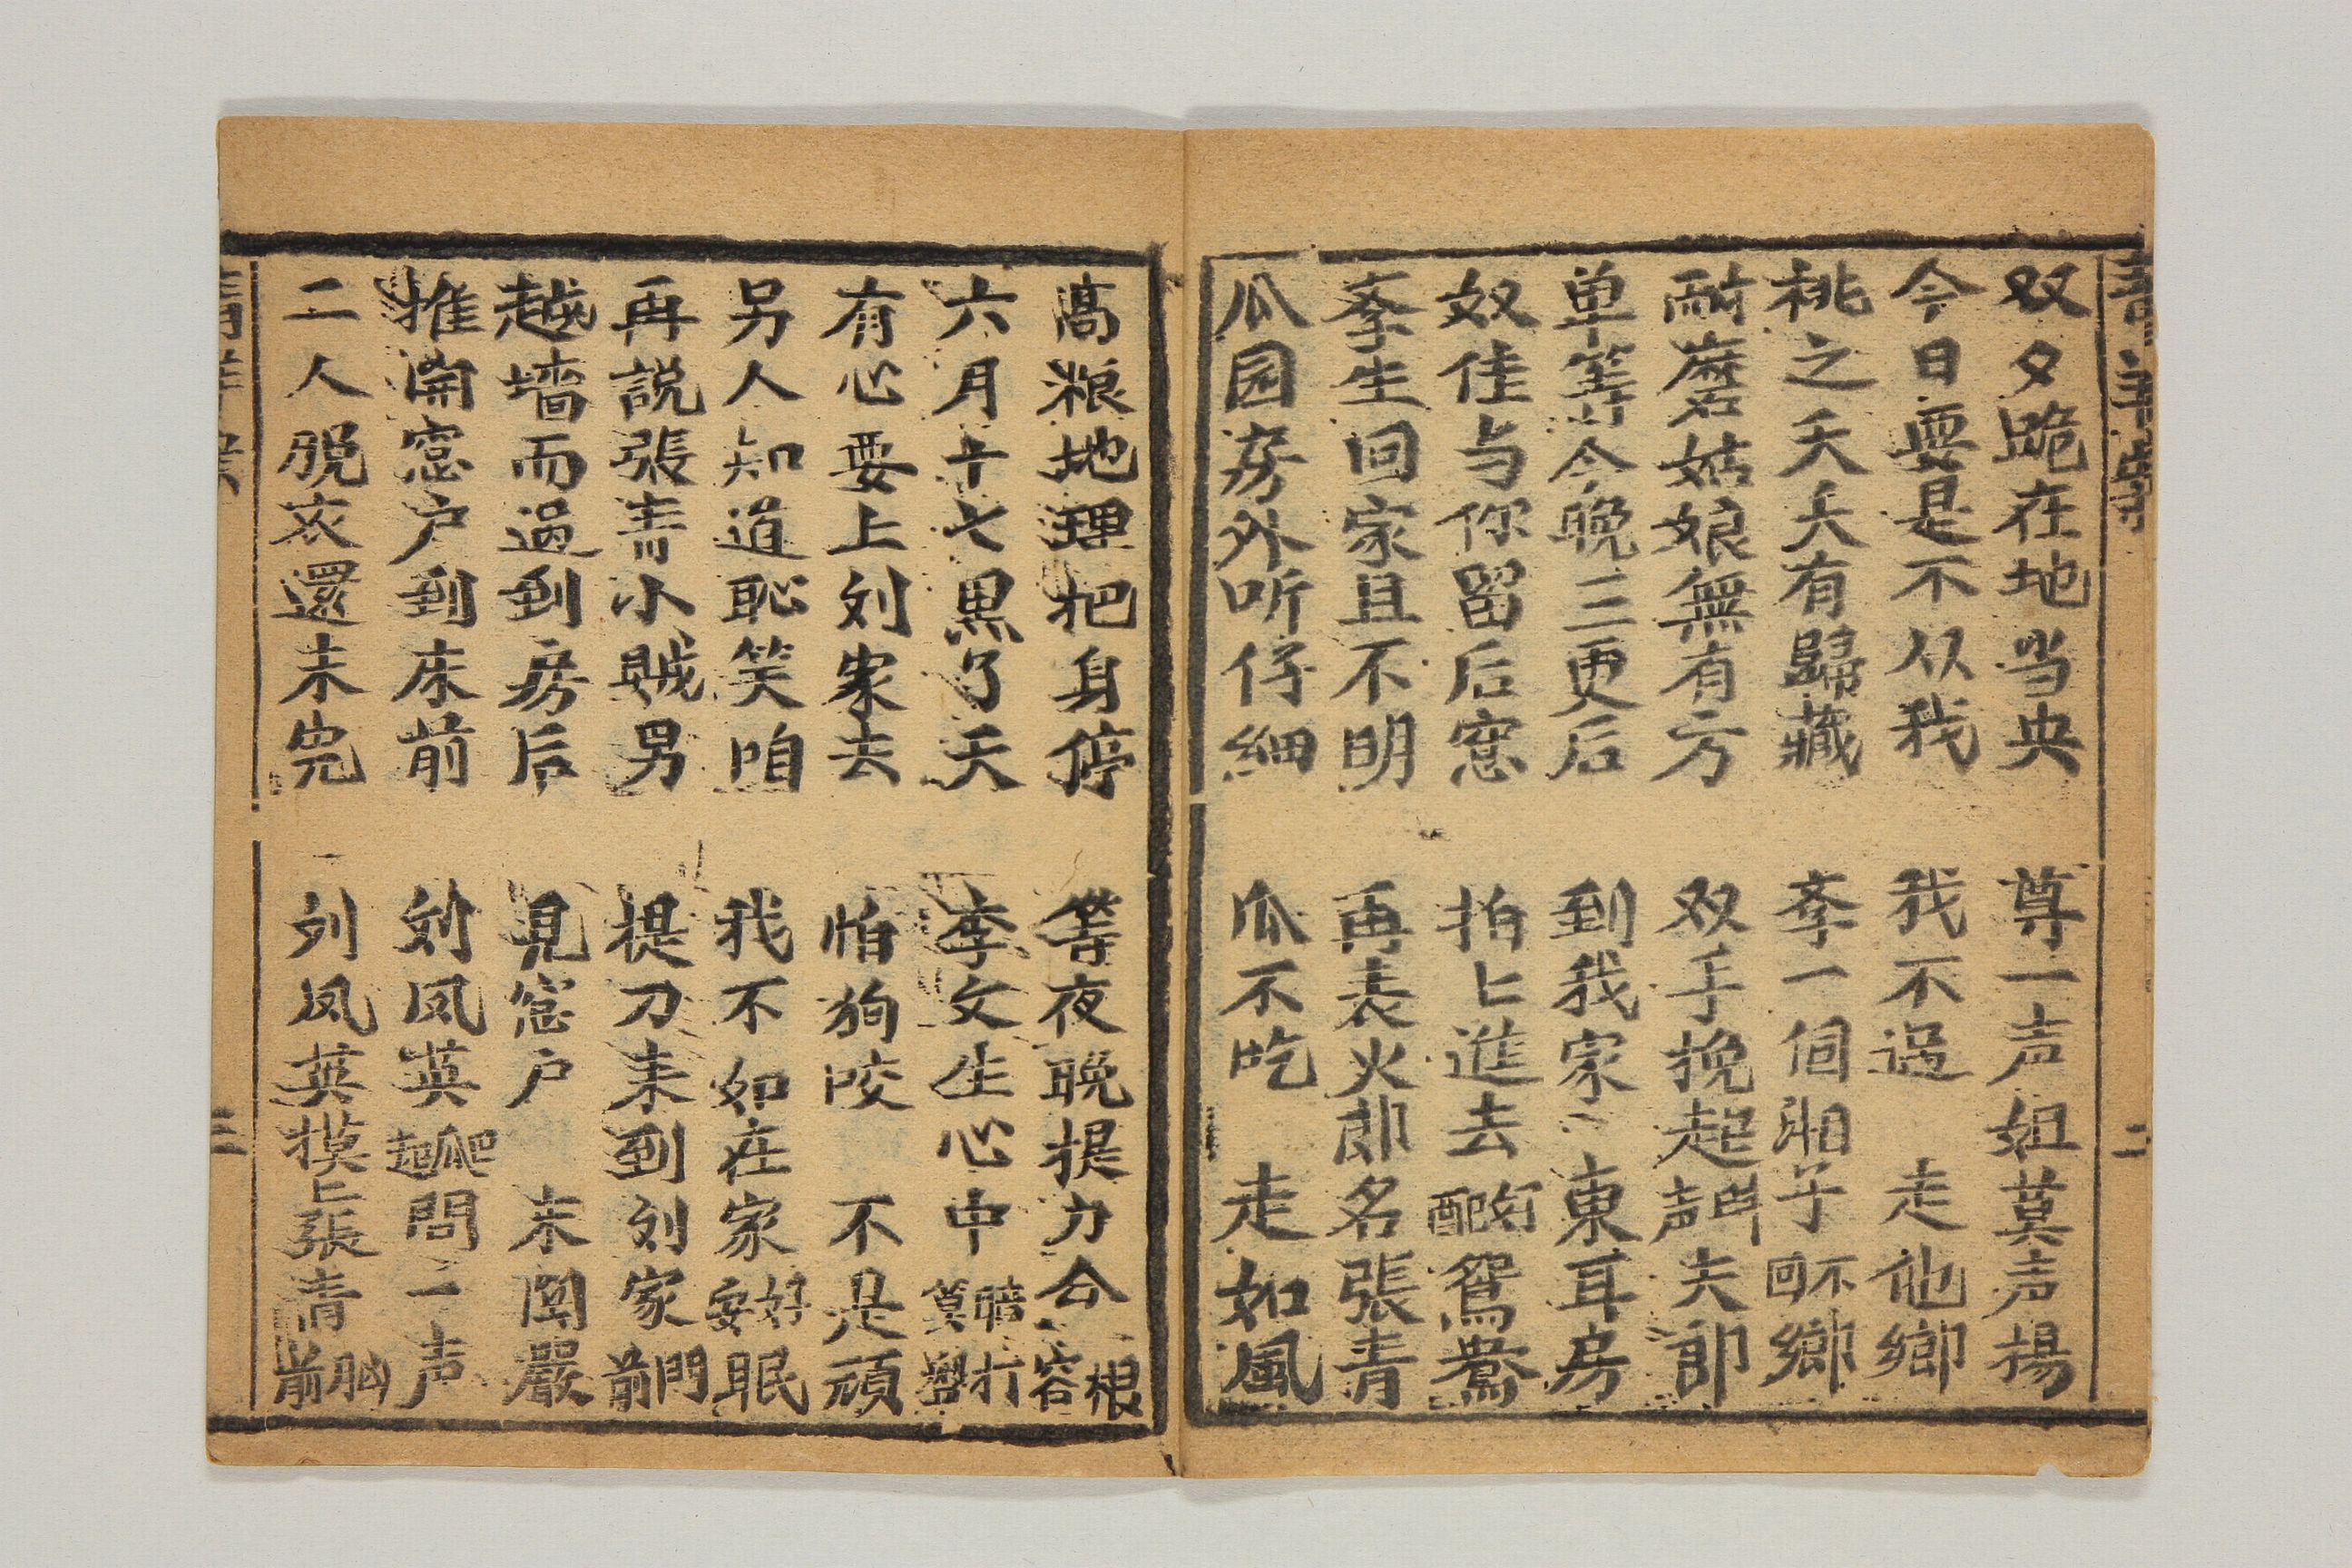 双夕跪在地当央　尊一声姐莫声揚
今日要是不从我　我不过走他鄉
桃之夭夭有歸藏　李一個湘子不回鄉
耐磨姑娘無有方　双手挽起声門夫郎
单等今晚三更后　到我家〻東耳房
奴佳与你留后窓　拍上進去配鴛鴦
李生回家且不明　再表火郎名張青
瓜园房外听仔細　瓜不吃走如風
高粮地理把身停　等夜晚提力会根容
六月十七黑了天　李文生心中暗打莫劃
有心要上刘家去　怕狗咬不是頑
另人知道恥笑咱　我不如在家好安眠
再説張青小賊男　提刀来到刘家門前
越墙而过到房后　見窓户未関嚴
推開窓户到床前　刘凤英爬起問一声
二人脱衣還未完　刘凤英摸上張清胸前
二
三